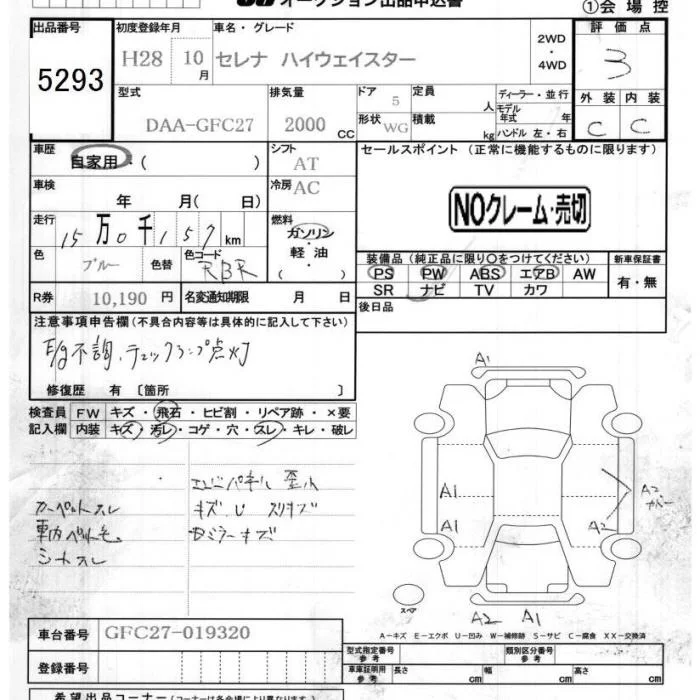 オークション出品申込書
①会場控
出品番号 初度登録年月 車名・グレード 2WD・4WD 評価点
5293 H28 10月 セレナ ハイウェイスター 3
型式 排気量 ドア 定員 ディーラー・並行 外装 内装
DAA-GFC27 2000CC 5 人 モデル年式 年 C C
形状 WG 積載 kg ハンドル 左・右
車歴 自家用・( ) シフト AT セールスポイント(正常に機能するものに限ります)
車検 年 月( 日) 冷房 AC
NOクレーム・売切
走行 15万0千157km 燃料 ガソリン・軽油・( )
色 ブルー 色替 色コード RBR
装備品(純正品に限り〇をつけてください) 新車保証書
PS PW ABS エアB AW 有・無
SR ナビ TV カワ
R券 10,190円 名変通知期限 月 日 後日品
注意事項申告欄(不具合内容等は具体的に記入して下さい)
E/g不調、チェックランプ点灯
修復歴 有〔箇所 〕
検査員 FW キズ・飛石・ヒビ割・リペア跡・×要
記入欄 内装 キズ・汚レ・コゲ・穴・スレ・キレ・破レ
カーペットスレ
車内ペット毛
シートスレ
キズU スリキズ
ミラーキズ
A1
A1
A1
A2
A2
スペア
A2 A1
A-キズ E-エクボ U-凹み W-補修跡 S-サビ C-腐食 XX-交換済
車台番号 GFC27-019320
型式指定番号 参考 類別区分番号 参考
登録番号 車庫証明用 参考 長さ cm 幅 cm 高さ cm
希望出品コーナー(コーナーは各会場により異なります)